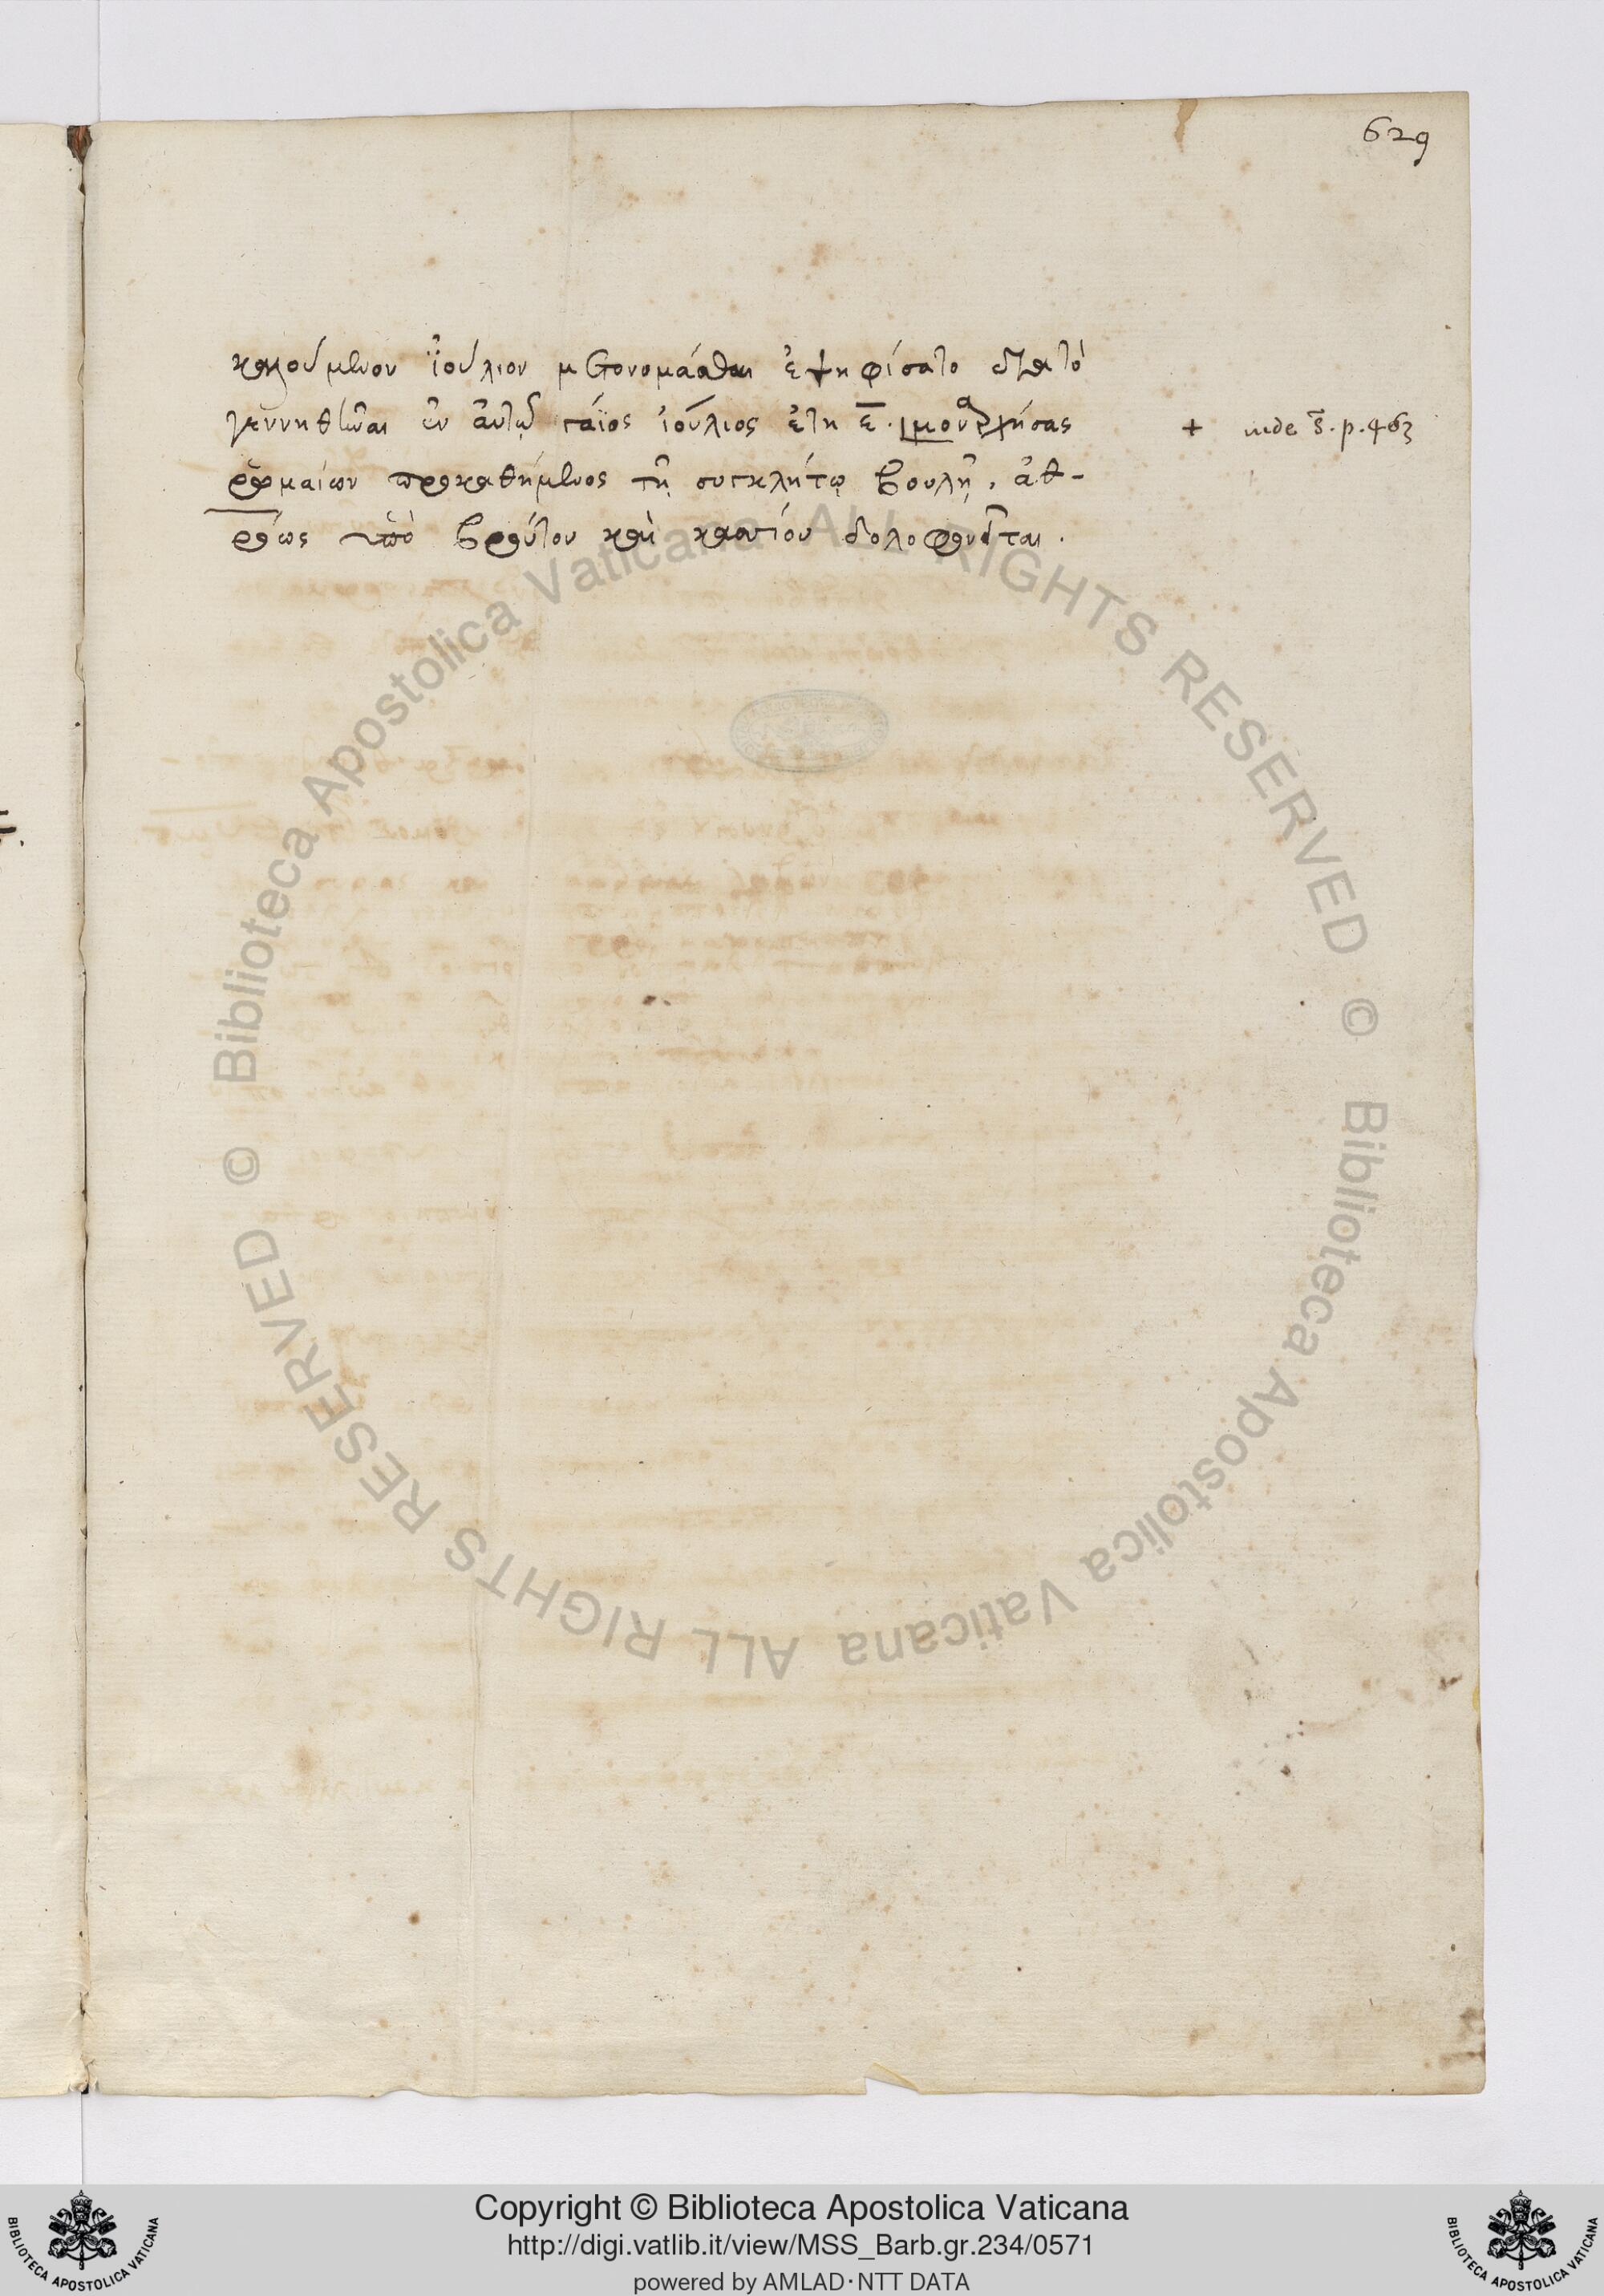 629
καλούμενον ἰούλιον μετονομάσαι ἐψηφίσατο διὰ τὸ
γεννηθῆναι ἐν αὐτῷ γάϊος ἰούλιος ἔτη ε̅. μοναρχήσας
ῥωμαίων προκαθήμενος τῇ συγκλήτῳ βουλῇ, ἀθ-
ρόως ὑπὸ βρούτου καὶ κασίου δολοφονεῖται.
+ uide s. p. 463
© Biblioteca Apostolica Vaticana ALL RIGHTS RESERVED
© Biblioteca Apostolica Vaticana ALL RIGHTS RESERVED
Copyright © Biblioteca Apostolica Vaticana
http://digi.vatlib.it/view/MSS_Barb.gr.234/0571
powered by AMLAD·NTT DATA
BIBLIOTECA APOSTOLICA VATICANA
BIBLIOTECA APOSTOLICA VATICANA